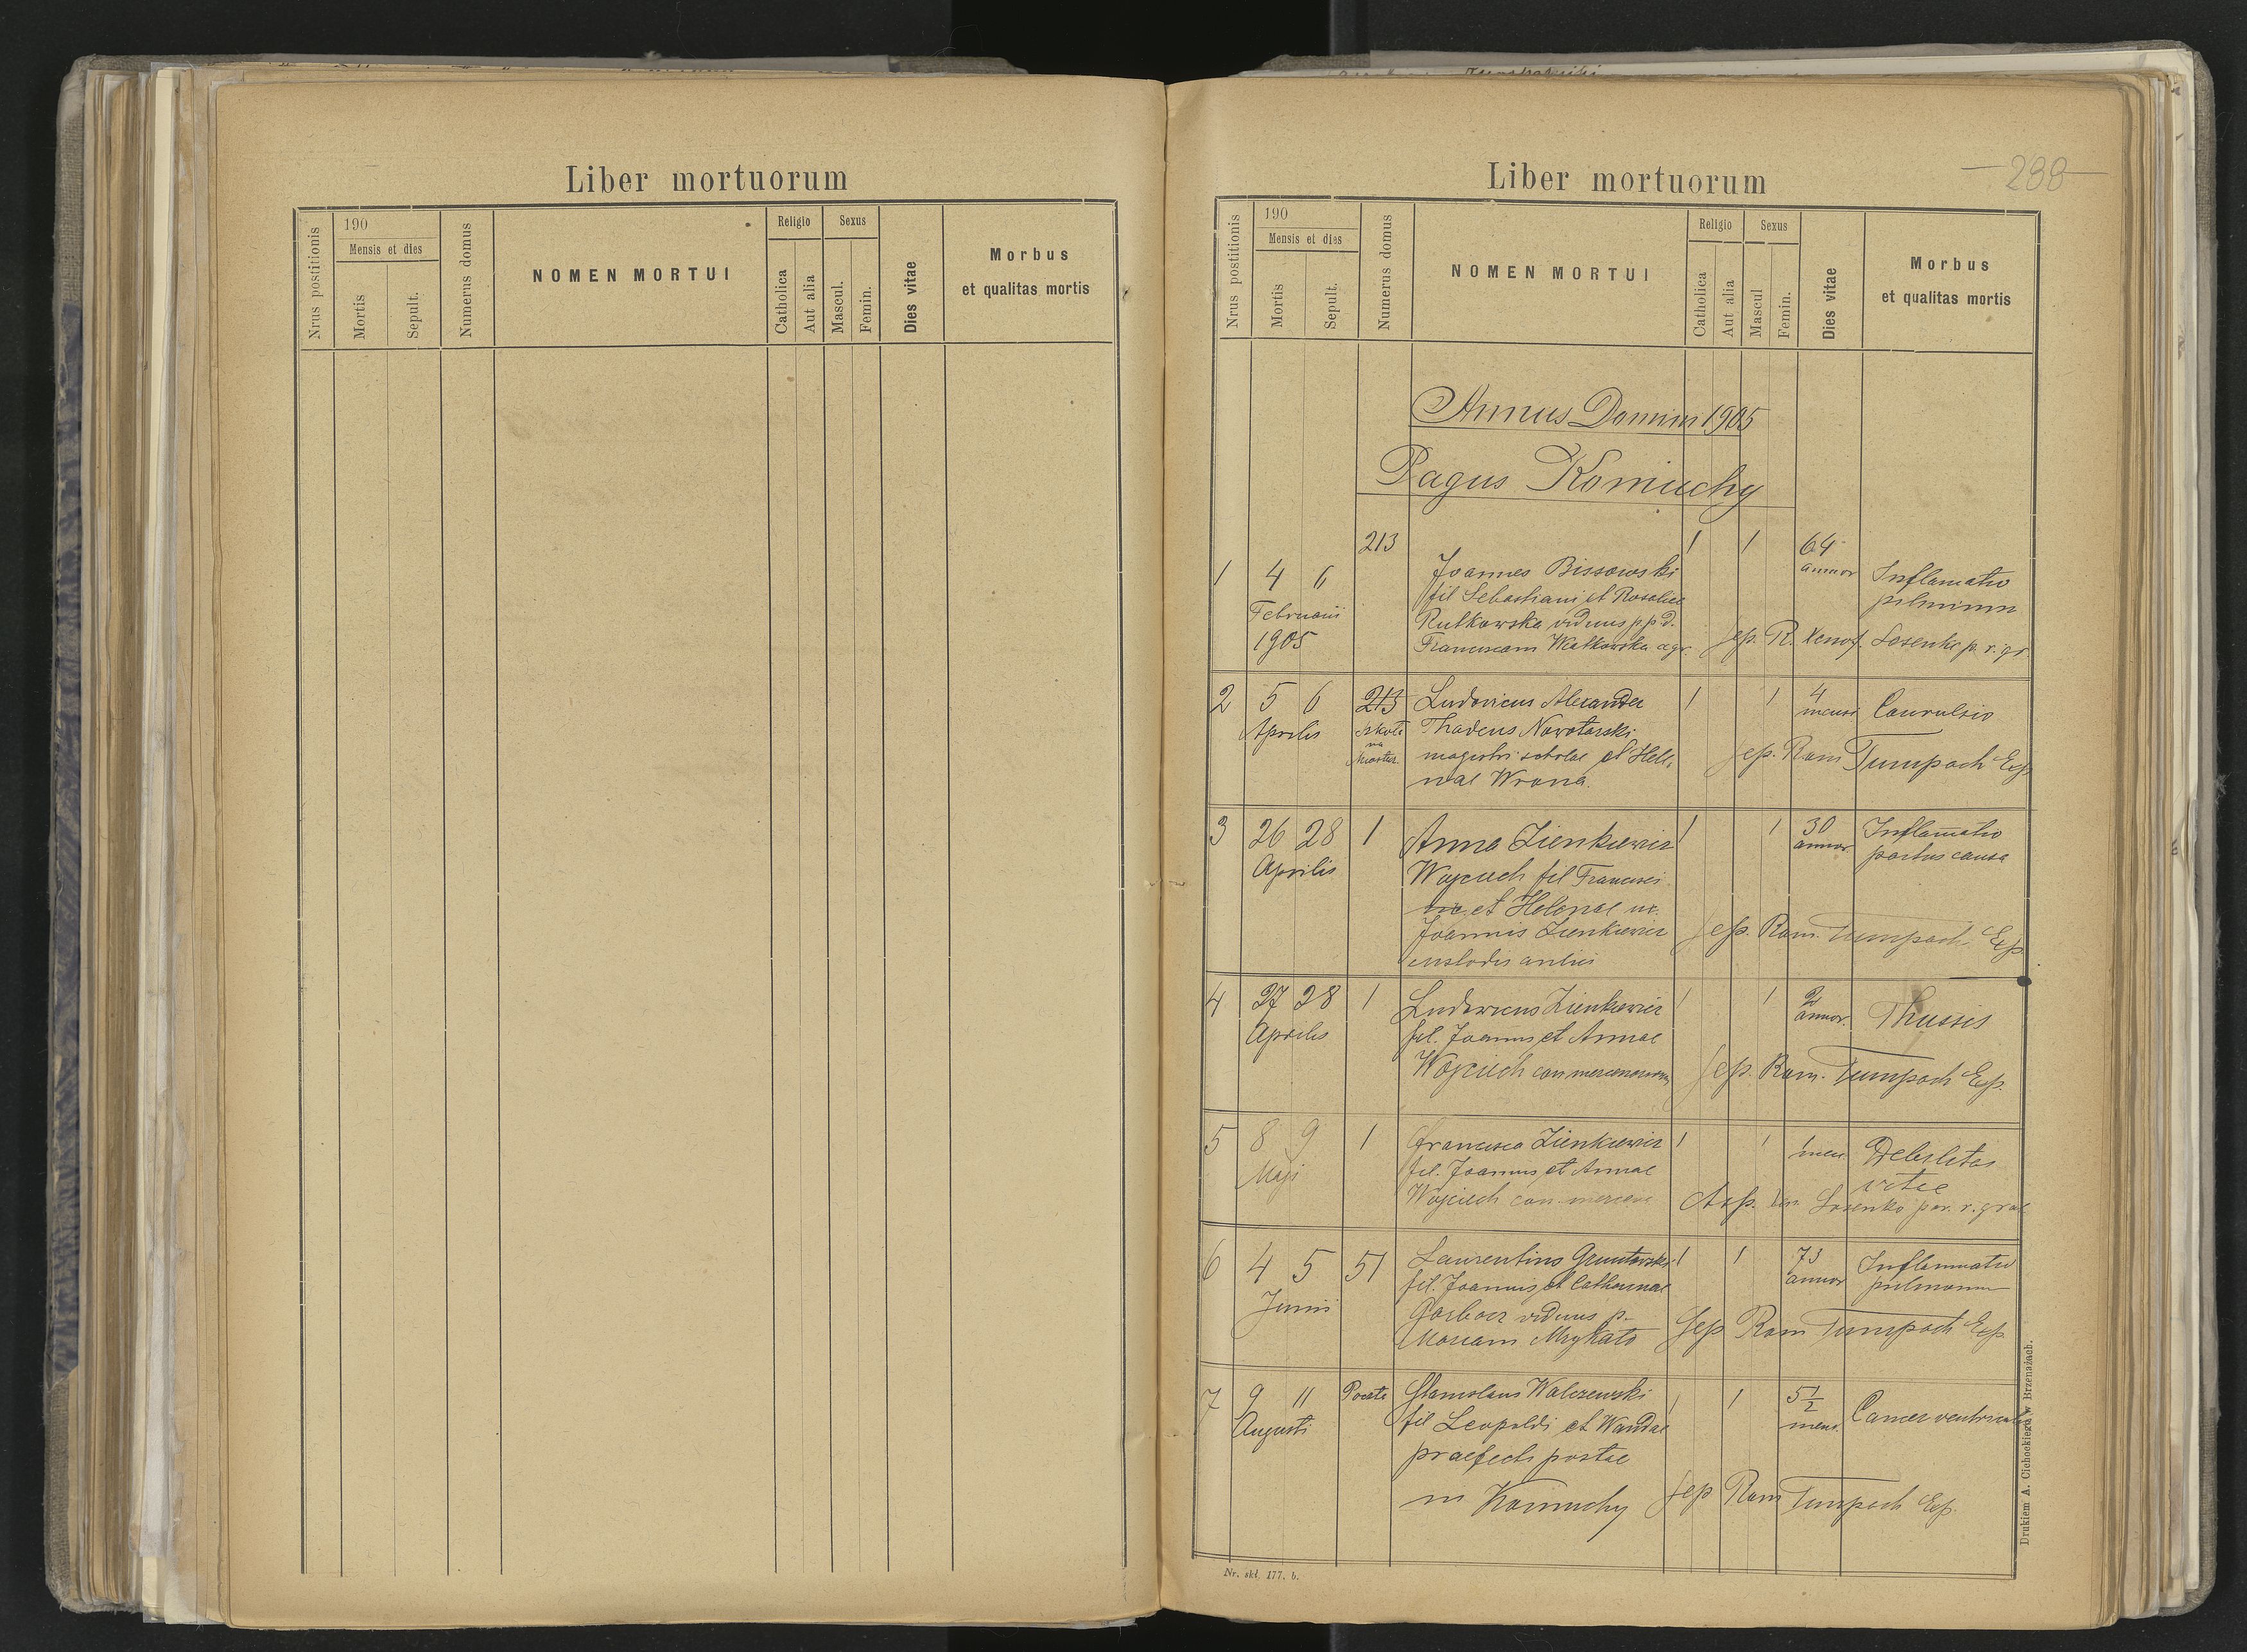 Liber mortuorum
Nrus postitionis
190
Mensis et dies
Mortis
Sepult.
Numerus domus
NOMEN MORTUI
Religio
Catholica
Aut alia
Sexus
Mascul.
Femin.
Dies vitae
Morbus
et qualitas mortis
Liber mortuorum
288
Nrus postitionis
190
Mensis et dies
Mortis
Sepult.
Numerus domus
NOMEN MORTUI
Religio
Catholica
Aut alia
Sexus
Mascul
Femin.
Dies vitae
Morbus
et qualitas mortis
Annus Domini 1905
Pagus Koniuchy
213 1 1 64
1 4 6 Joannes Bissowski annor Inflamatio
fil Sebastiani et Rosaliae pulmonum
Februarii Rutkowska viduus p p d.
1905 Franciscam Watkowska agr. Sep. R. Xenof. Sosenko p. r. gr.
2 5 6 213 Ludovicus Alexander 1 1 4 mensi Convulsio
Aprilis szkoła Thadeus Nowotarski
na magistri scholae et Hele Sep. Rom Tumpach Exp
nae Wrona.
3 26 28 1 Anna Zienkiewicz 1 1 30 annor. Inflamatio
Aprilis Wojciech fil Francisci partus causa
et Helenae ux.
Joannis Zienkiewicz Sep. Rom. Tumpach Exp.
custodis
4 27 28 1 Ludovicus Zienkiewicz 1 1 2 annor. Thussis
Aprilis fil. Joannis et Annae
Wojciech con mercenariorum Sep. Rom. Tumpach Exp.
5 8 9 1 Francisca Zienkiewicz 1 1 1 men Debilitas
Maji fil. Joannis et Annae vitae
Wojciech con. Sosenko par. r. gr
6 4 5 51 Laurentius 1 1 73 annor Inflammatio
Junii fil. Joannis et Catharinae pulmonum
viduus p. Sep Rom Tumpach Exp.
Mariam
7 9 11 Poczta Stanislaus Walczewski 1 1 5 1/2 mens. Cancer ventriculi
Augusti fil Leopoldi et Wandae
praefecti postae
in Koniuchy Sep Rom Tumpach Exp.
Nr. skł. 177. b.
Drukiem A. Cichockiego w Brzeżanach.